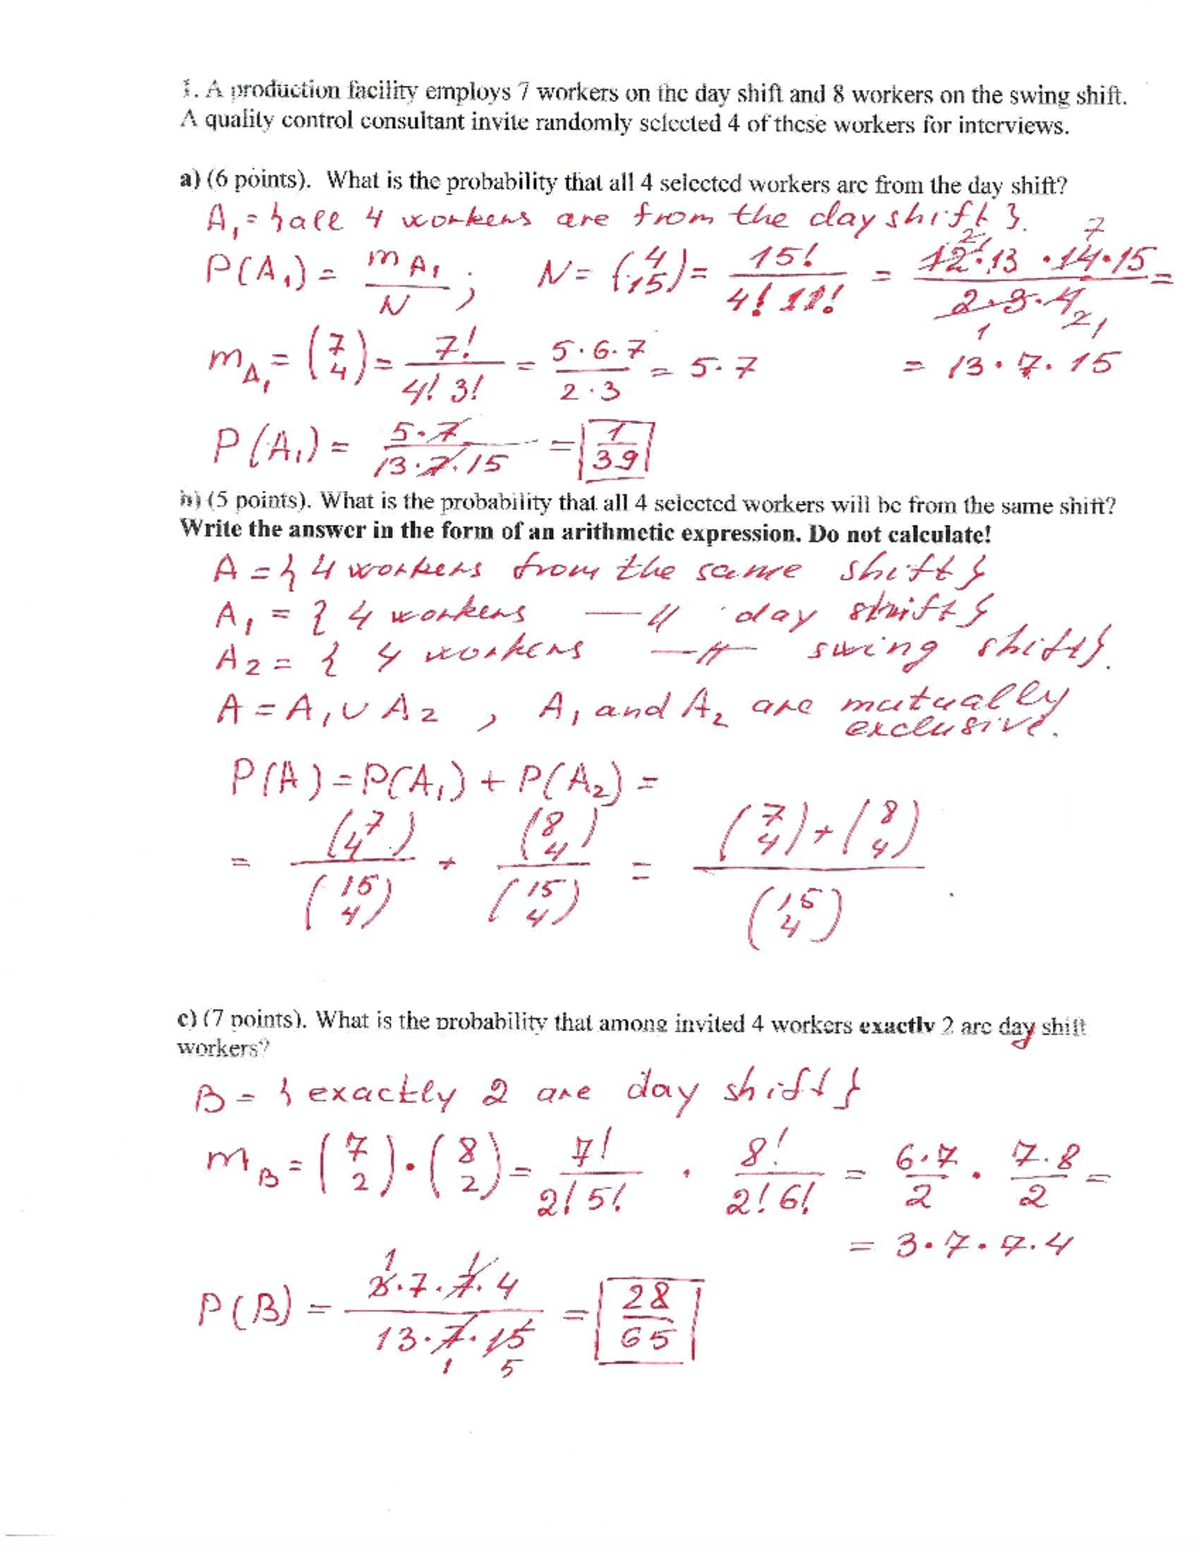 1. A production facility employs 7 workers on the day shift and 8 workers on the swing shift.
A quality control consultant invite randomly selected 4 of these workers for interviews.
a) (6 points). What is the probability that all 4 selected workers are from the day shift?
A₁ = {all 4 workers are from the day shift}.
P(A₁) = m_A₁ / N ; N = (4 15) = 15! / 4! 11! = 12·13·14·15 / 2·3·4 =
m_A₁ = (7 4) = 7! / 4! 3! = 5·6·7 / 2·3 = 5·7 = 13·7·15
P(A₁) = 5·7 / 13·7·15 = 1/39
b) (5 points). What is the probability that all 4 selected workers will be from the same shift?
Write the answer in the form of an arithmetic expression. Do not calculate!
A = {4 workers from the same shift}
A₁ = {4 workers —〃 day shift}
A₂ = {4 workers —〃— swing shift}.
A = A₁ ∪ A₂ , A₁ and A₂ are mutually
exclusive.
P(A) = P(A₁) + P(A₂) =
= (7 4) / (15 4) + (8 4) / (15 4) = (7 4) + (8 4) / (15 4) .
c) (7 points). What is the probability that among invited 4 workers exactly 2 are day shift
workers?
B = {exactly 2 are day shift}
m_B = (7 2) · (8 2) = 7! / 2! 5! · 8! / 2! 6! = 6·7 / 2 · 7·8 / 2 =
= 3·7·7·4
P(B) = 3·7·7·4 / 13·7·15 = 28/65